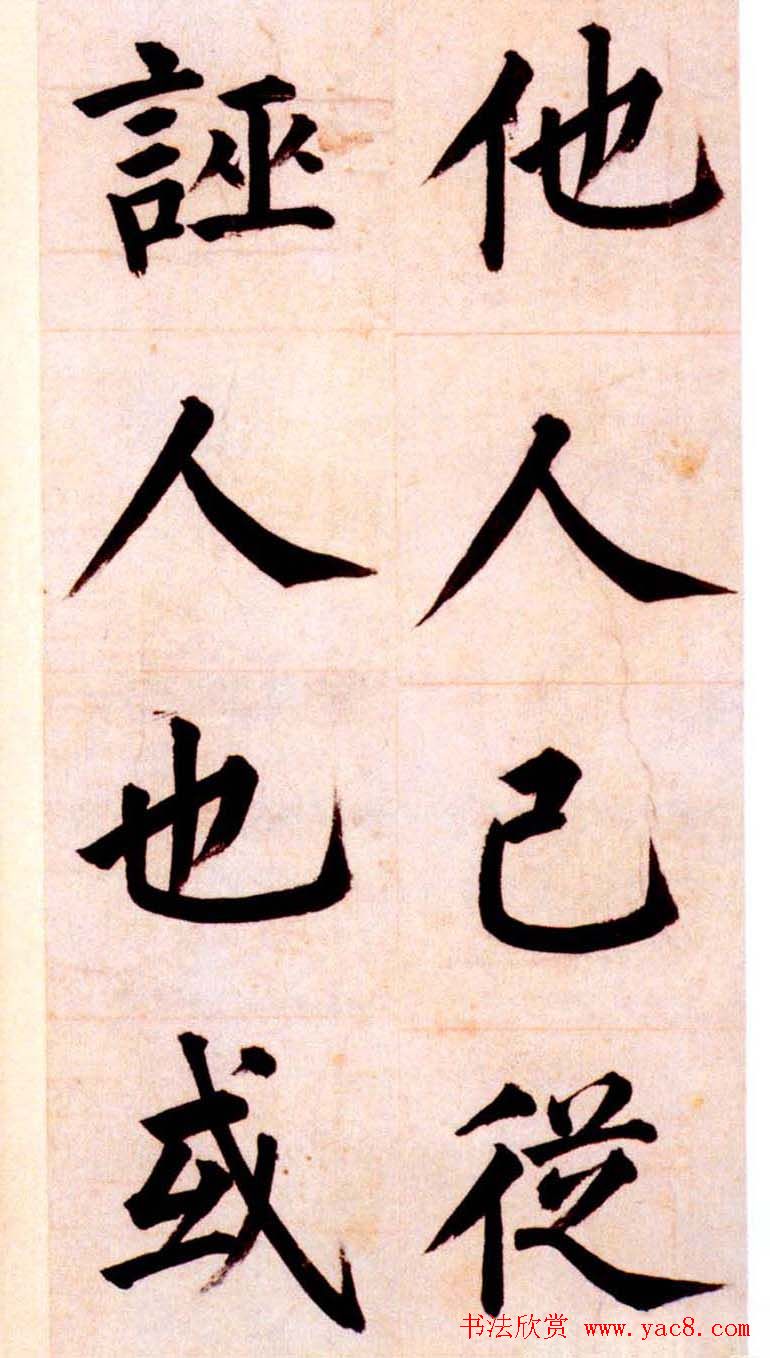 他人己從
誣人也或
书法欣赏 www.yac8.com